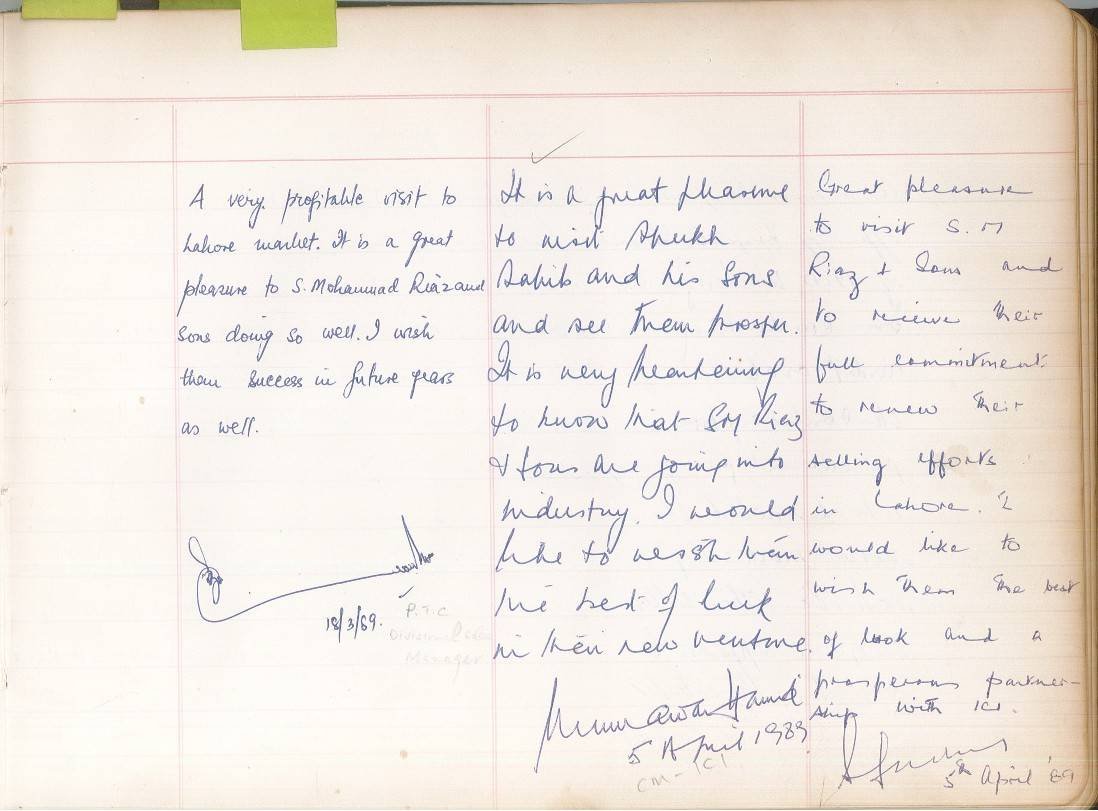 A very profitable visit to
Lahore market. It is a great
pleasure to S. Mohammad Riaz and
sons doing so well. I wish
them success in future years
as well.
18/3/89.
P.T.C
Division
Manager
It is a great pleasure
to visit Sheikh
Sahib and his Sons
and see them prosper.
It is very heartening
to know that SM Riaz
& Sons are going into
industry. I would
like to wish them
the best of luck
in their new venture.
Munawar Hamid
5 April 1989
CM - ICI
Great pleasure
to visit S. M
Riaz & Sons and
to receive their
full commitment
to renew their
selling efforts
in Lahore. I
would like to
wish them the best
of look and a
prosperous partner-
ship with ICI.
5th April '89